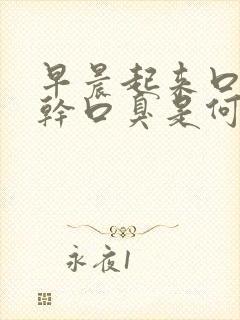 早晨起来口
幹口臭是何
永夜1